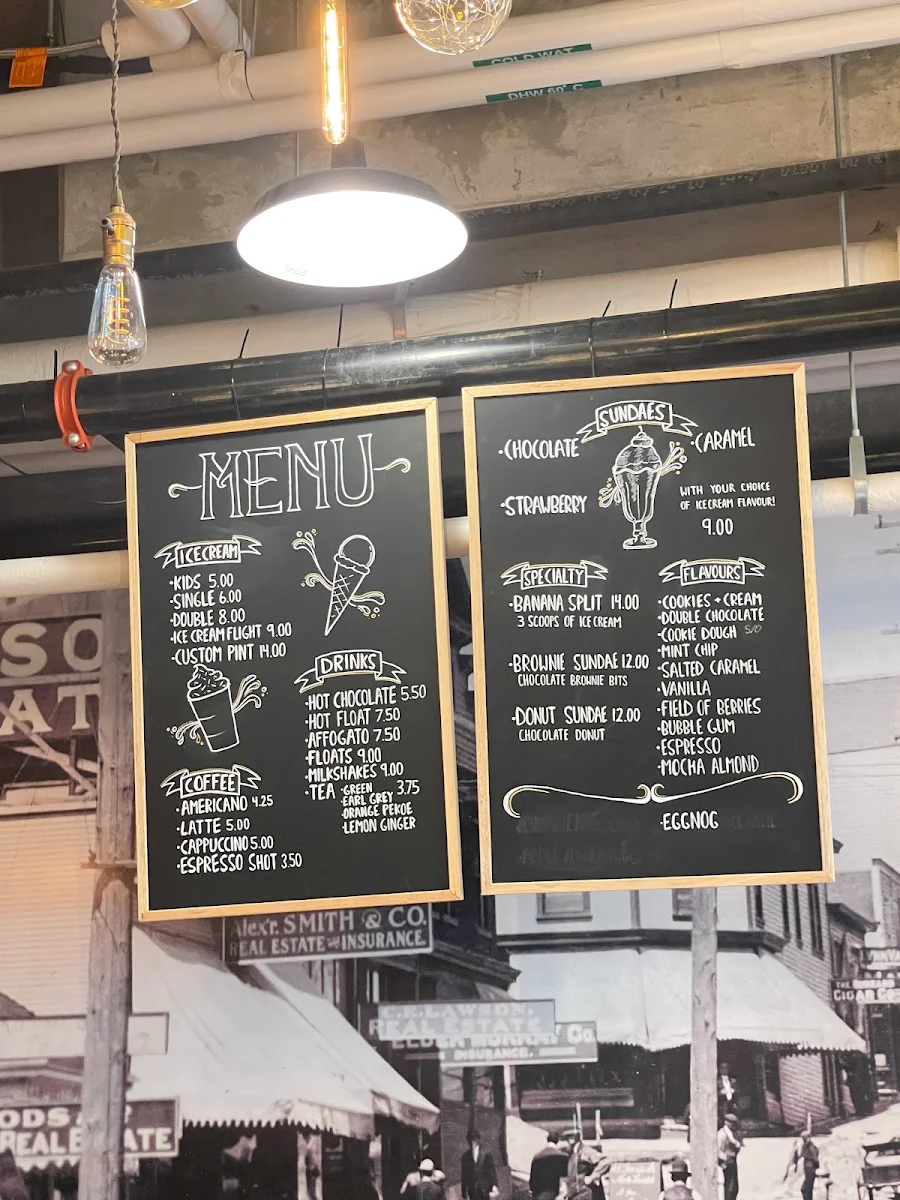 COLD WAT
DHW 60° C
MENU
ICE CREAM
·KIDS 5.00
·SINGLE 6.00
·DOUBLE 8.00
·ICE CREAM FLIGHT 9.00
·CUSTOM PINT 14.00
DRINKS
·HOT CHOCOLATE 5.50
·HOT FLOAT 7.50
·AFFOGATO 7.50
·FLOATS 9.00
·MILKSHAKES 9.00
·TEA ·GREEN 3.75
·EARL GREY
·ORANGE PEKOE
·LEMON GINGER
COFFEE
·AMERICANO 4.25
·LATTE 5.00
·CAPPUCCINO 5.00
·ESPRESSO SHOT 3.50
SUNDAES
·CHOCOLATE
·CARAMEL
·STRAWBERRY
WITH YOUR CHOICE
OF ICE CREAM FLAVOUR!
9.00
SPECIALTY
·BANANA SPLIT 14.00
3 SCOOPS OF ICE CREAM
·BROWNIE SUNDAE 12.00
CHOCOLATE BROWNIE BITS
·DONUT SUNDAE 12.00
CHOCOLATE DONUT
FLAVOURS
·COOKIES + CREAM
·DOUBLE CHOCOLATE
·COOKIE DOUGH S/O
·MINT CHIP
·SALTED CARAMEL
·VANILLA
·FIELD OF BERRIES
·BUBBLE GUM
·ESPRESSO
·MOCHA ALMOND
·EGGNOG
SO
AT
Alexr. SMITH & CO.
REAL ESTATE AND INSURANCE.
C.E. LAWSON.
REAL ESTATE
Co.
INSURANCE.
CIGAR Co
ODS
REAL ESTATE